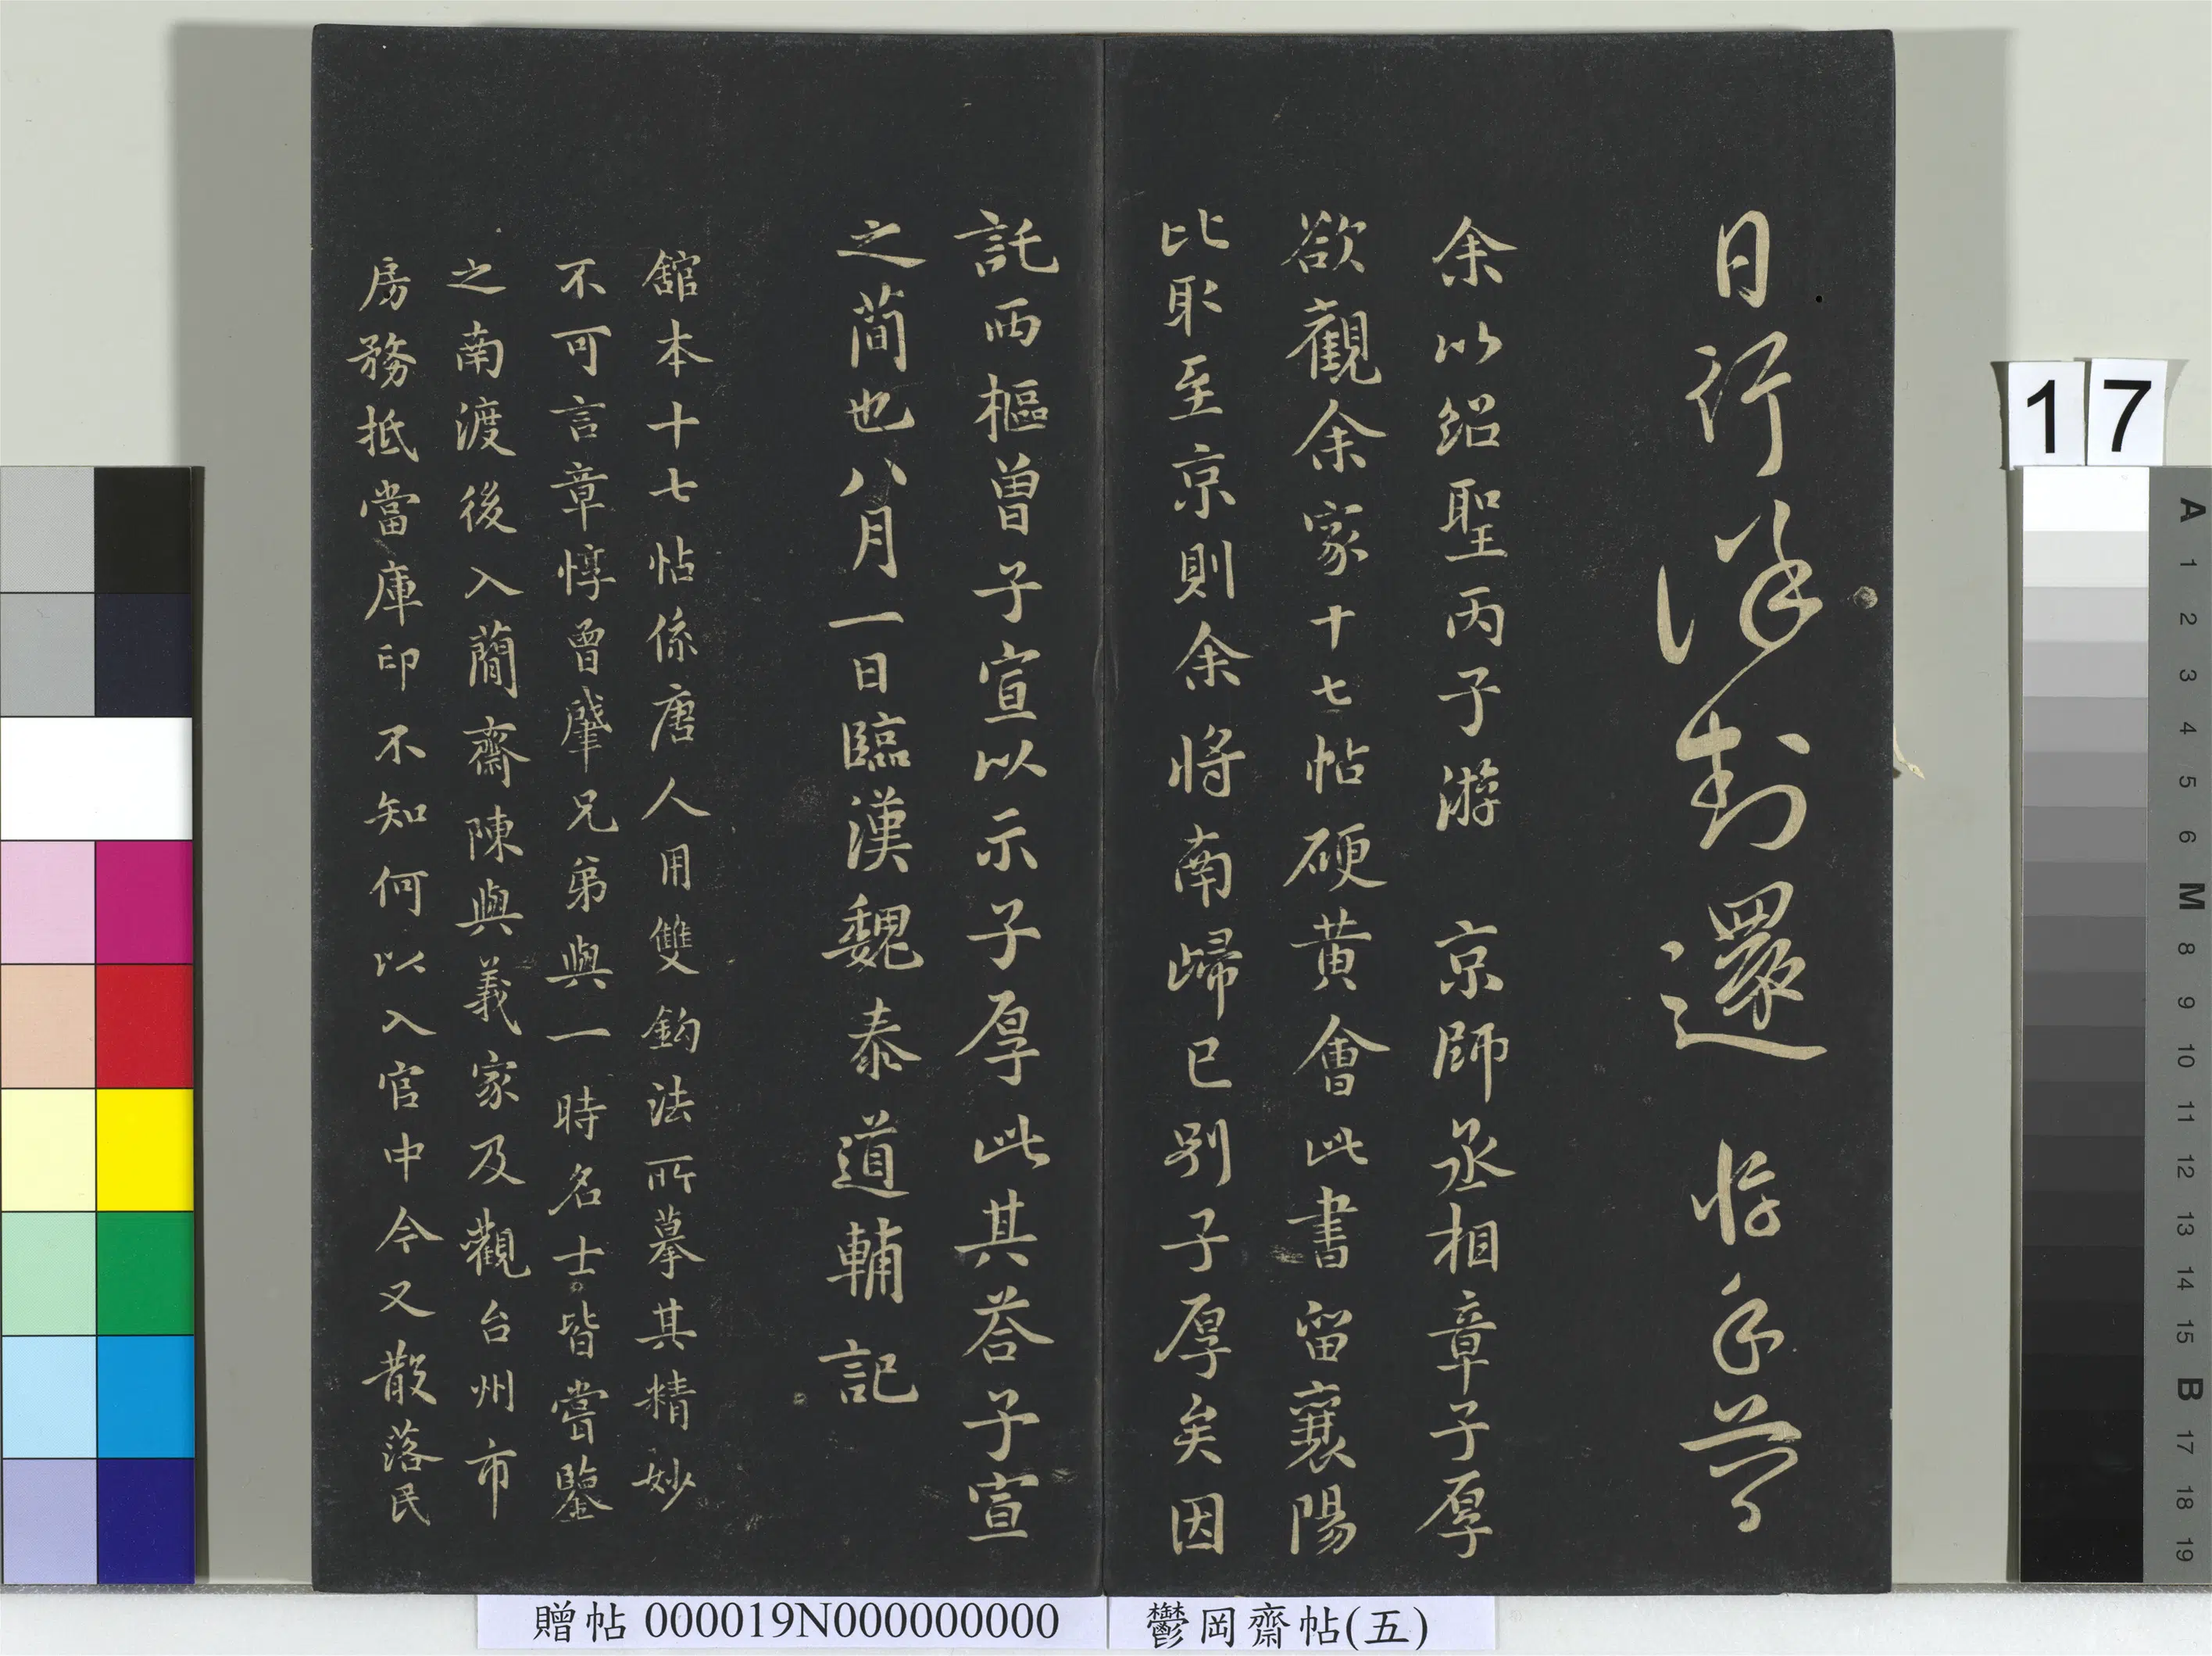 日行詳封還 惇手簡
余以紹聖丙子游 京師丞相章子厚
欲觀余家十七帖硬黃會此書留襄陽
比取至京則余將南歸已別子厚矣因
託西樞曾子宣以示子厚此其荅子宣
之蕑也八月一日臨漢魏泰道輔記
舘本十七帖係唐人用雙鈎法所摹其精妙
不可言章惇曾肇兄弟與一時名士皆嘗鑒
之南渡後入蕑齋陳與義家及觀台州市
房務抵當庫印不知何以入官中今又散落民
贈帖 000019N000000000
鬱岡齋帖(五)
17
A 1 2 3 4 5 6 M 8 9 10 11 12 13 14 15 B 17 18 19